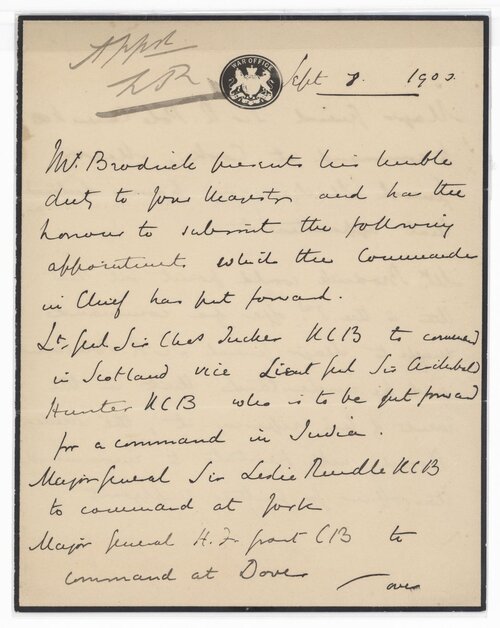 Appd
ER
WAR OFFICE
Sept 8. 1903
Mr. Brodrick presents his humble
duty to Your Majesty and has the
honour to submit the following
appointments which the Commander
in Chief has put forward.
Lt. Gnl Sir Chas Tucker KCB to command
in Scotland vice Lieut Gnl Sir Archibald
Hunter KCB who is to be put forward
for a command in India.
Major General Sir Leslie Rundle KCB
to command at York
Major General H. F. Grant CB to
command at Dover
over